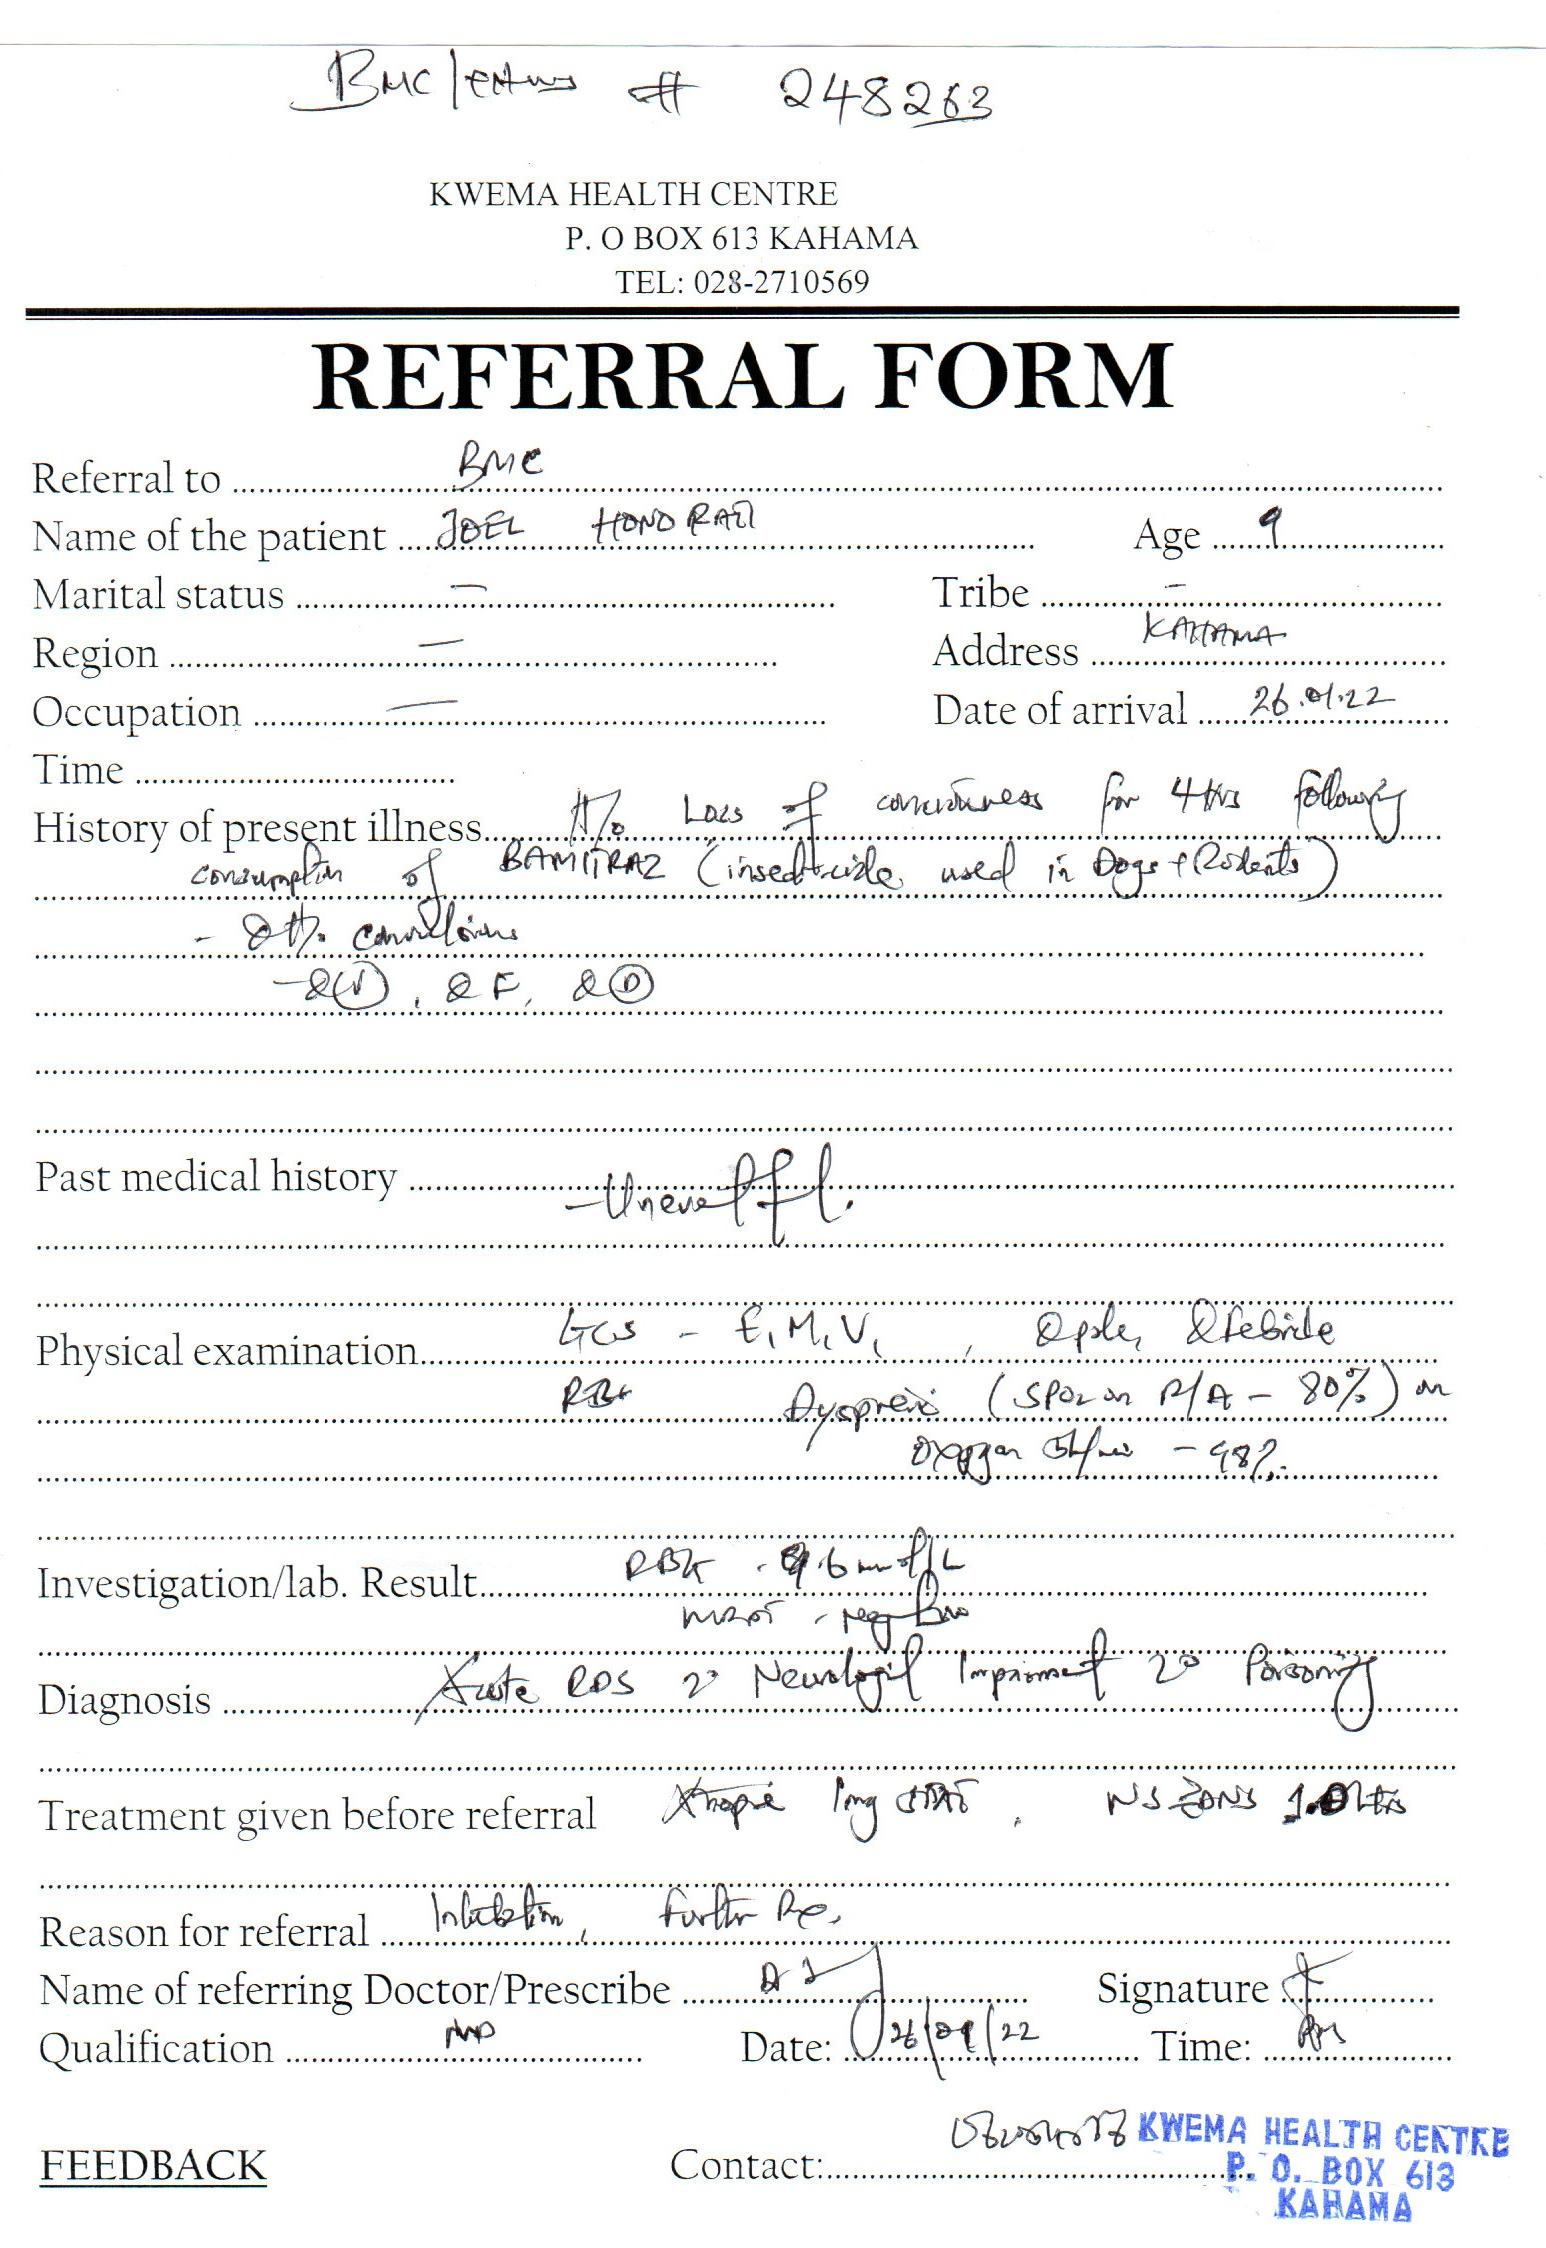 BMC # 248263
KWEMA HEALTH CENTRE
P. O BOX 613 KAHAMA
TEL: 028-2710569
REFERRAL FORM
Referral to BMC
Name of the patient JOEL Age 9
Marital status — Tribe -
Region — Address KAHAMA
Occupation — Date of arrival
Time
History of present illness H/o Loss of for 4Hrs following
consumption of (insecticide used in Dogs + Rodents)
convulsions
Past medical history
- Uneventful.
Physical examination GCS - E1 M1 V1,
RBG Dyspneic (SPO2 on R/A - 80%) on
Oxygen - 98%.
Investigation/lab. Result RBG
MRDT
Diagnosis Acute RDS 2° Impairment 2° Poisoning
Treatment given before referral 1mg STAT, NS
Reason for referral Intubation, Further Rx.
Name of referring Doctor/Prescribe Signature
Qualification MD Date: Time:
FEEDBACK Contact:
KWEMA HEALTH CENTRE
P. O. BOX 613
KAHAMA